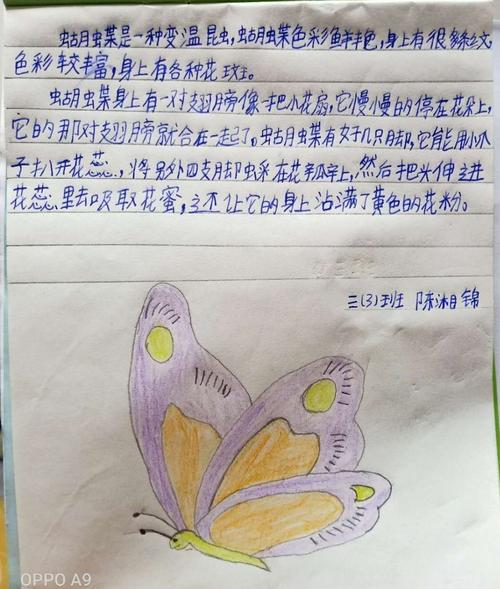 蝴蝶是一种变温昆虫,蝴蝶色彩鲜艳,身上有很多条纹
色彩较丰富,身上有各种花斑。
蝴蝶身上有一对翅膀像一把小花扇,它慢慢的停在花朵上,
它的那对翅膀就合在一起了,蝴蝶有好几只脚,它能用小爪
子扒开花蕊,将另外四支脚踩在花瓣上,然后把头伸进
花蕊里去吸取花蜜,这不让它的身上沾满了黄色的花粉。
三(3)班 陈湘锦
OPPO A9